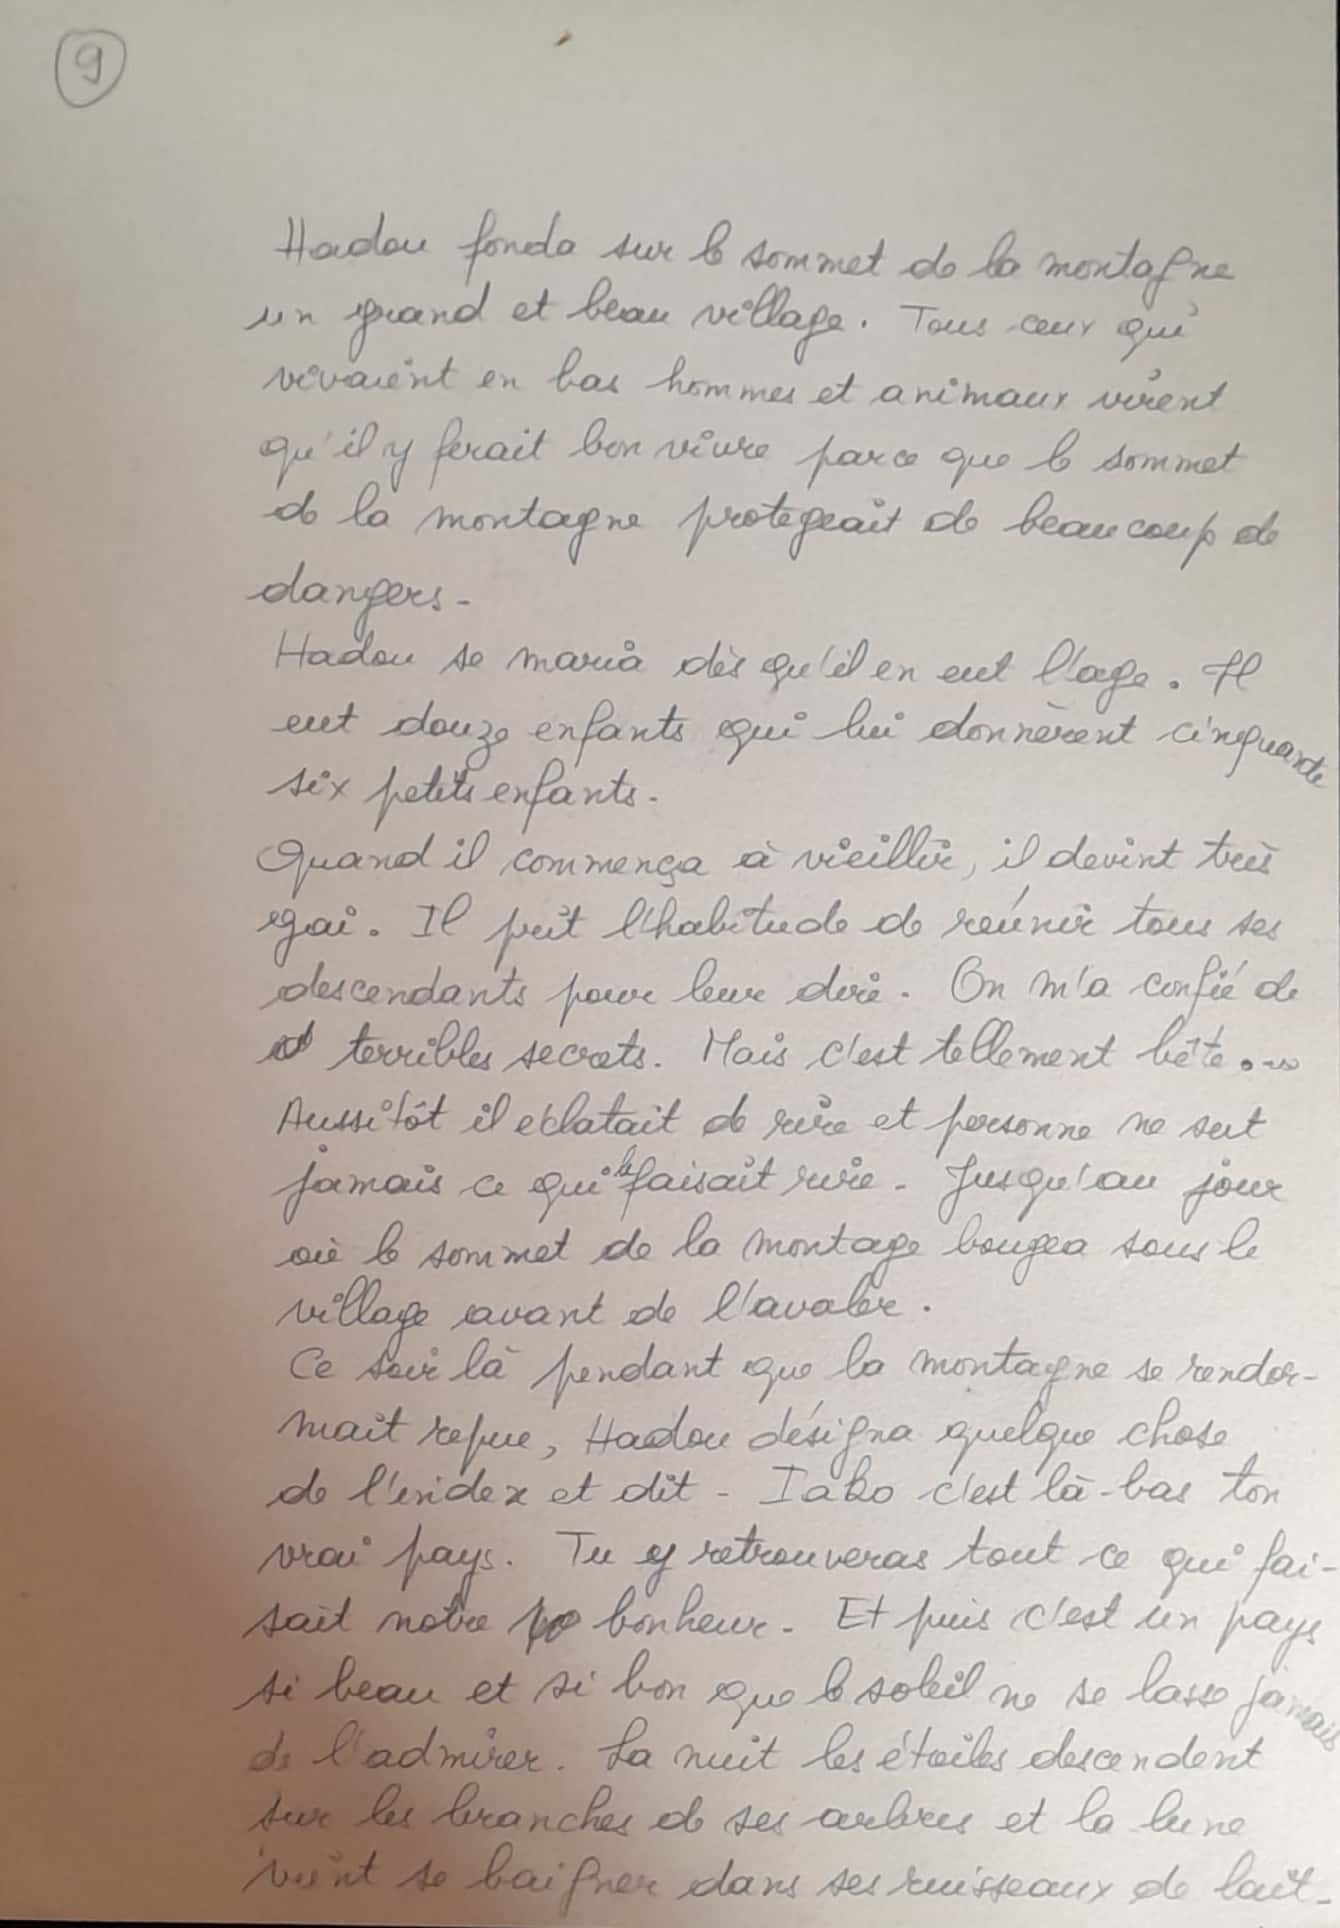 9
Hadou fonda sur le sommet de la montagne
un grand et beau village. Tous ceux qui
vivaient en bas hommes et animaux virent
qu'il y ferait bon vivre parce que le sommet
de la montagne protegeait de beaucoup de
dangers.
Hadou se maria dès qu'il en eut l'age. Il
eut douze enfants qui lui donnèrent cinquante
six petits enfants.
Quand il commença à vieillir, il devint très
gai. Il prit l'habitude de reúnir tous ses
descendants pour leur dire. On m'a confié de
terribles secrets. Mais c'est tellement bête...
Aussitôt il eclatait de rire et personne ne sut
jamais ce qui le faisait rire. Jusqu'au jour
où le sommet de la montage bougea sous le
village avant de l'avaler.
Ce soir là pendant que la montagne se rendor-
mait repue, Hadou désigna quelque chose
de l'index et dit - Iako c'est là-bas ton
vrai pays. Tu y retrouveras tout ce qui fai-
sait notre bonheur. Et puis c'est un pays
si beau et si bon que le soleil ne se lasse jamais
de l'admirer. La nuit les étoiles descendent
sur les branches de ses arbres et la lune
vient se baigner dans ses ruisseaux de lait.